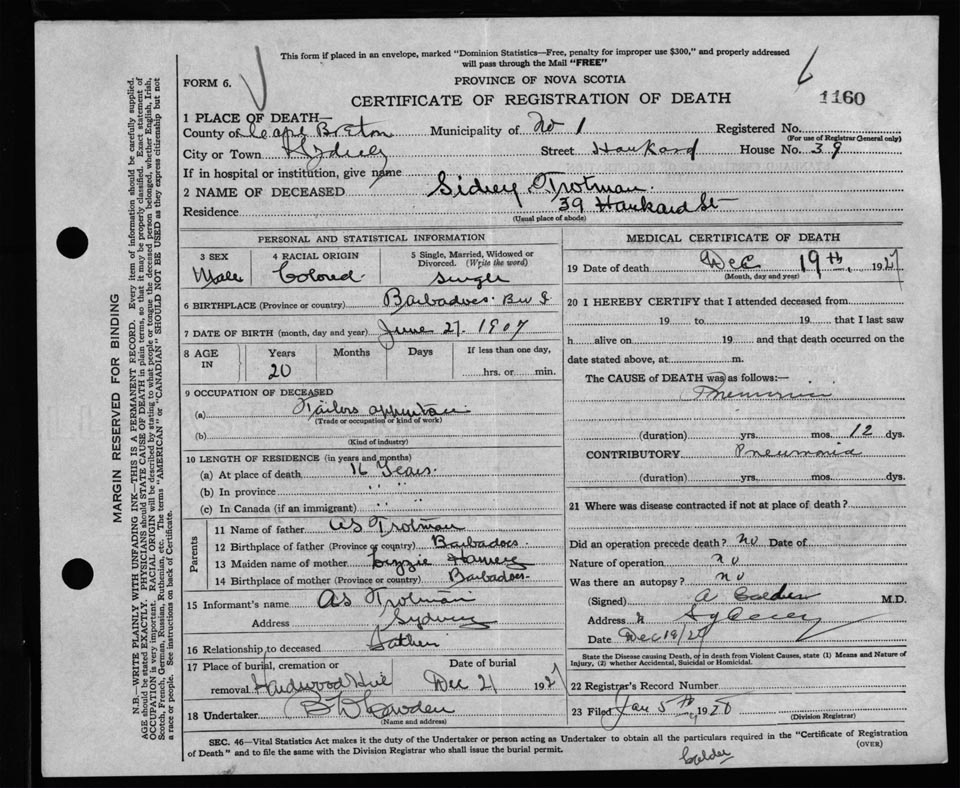 This form if placed in an envelope, marked "Dominion Statistics—Free, penalty for improper use $300," and properly addressed
will pass through the Mail "FREE"
FORM 6.
PROVINCE OF NOVA SCOTIA
CERTIFICATE OF REGISTRATION OF DEATH
1160
1 PLACE OF DEATH—
County of Cape Breton Municipality of No 1 Registered No.
(For use of Registrar General only)
City or Town Sydney Street Hankard House No. 39
If in hospital or institution, give name
2 NAME OF DECEASED Sidney Trotman
Residence 39 Hankard St
(Usual place of abode)
PERSONAL AND STATISTICAL INFORMATION
3 SEX 4 RACIAL ORIGIN 5 Single, Married, Widowed or
Divorced. (Write the word)
Male Colored Single
6 BIRTHPLACE (Province or country) Barbadoes. B W I
7 DATE OF BIRTH (month, day and year) June 27. 1907
8 AGE IN Years Months Days If less than one day,
20 hrs. or min.
9 OCCUPATION OF DECEASED
(a) Tailors
(Trade or occupation or kind of work)
(b)
(Kind of industry)
10 LENGTH OF RESIDENCE (in years and months)
(a) At place of death 16 Years.
(b) In province " "
(c) In Canada (if an immigrant) " "
Parents
11 Name of father AS Trotman
12 Birthplace of father (Province or country) Barbadoes.
13 Maiden name of mother Lizzie
14 Birthplace of mother (Province or country) Barbadoes
15 Informant's name AS Trotman
Address Sydney
16 Relationship to deceased Father
17 Place of burial, cremation or Date of burial
removal Hardwood Hill Dec 21 1927
18 Undertaker
(Name and address)
MEDICAL CERTIFICATE OF DEATH
19 Date of death Dec 19th, 1927
(Month, day and year)
20 I HEREBY CERTIFY that I attended deceased from
19 to 19 that I last saw
h alive on 19 and that death occurred on the
date stated above, at m.
The CAUSE of DEATH was as follows:—
Pneumonia
(duration) yrs. mos. 12 dys.
CONTRIBUTORY Pneumonia
(duration) yrs. mos. dys.
21 Where was disease contracted if not at place of death?
Did an operation precede death? No Date of
Nature of operation no
Was there an autopsy? no
(Signed) A Calder M.D.
Address Sydney
Date Dec 19/27
State the Disease causing Death, or in death from Violent Causes, state (1) Means and Nature of
Injury, (2) whether Accidental, Suicidal or Homicidal.
22 Registrar's Record Number
23 Filed Jan 5th 1928
(Division Registrar)
SEC. 46—Vital Statistics Act makes it the duty of the Undertaker or person acting as Undertaker to obtain all the particulars required in the "Certificate of Registration
of Death" and to file the same with the Division Registrar who shall issue the burial permit.
(OVER)
Calder
MARGIN RESERVED FOR BINDING
N.B.—WRITE PLAINLY WITH UNFADING INK—THIS IS A PERMANENT RECORD. Every item of information should be carefully supplied.
AGE should be stated EXACTLY. PHYSICIANS should STATE CAUSE OF DEATH in plain terms, so that it may be properly classified. Exact statement of
OCCUPATION is very important. RACIAL ORIGIN will be described by stating to what people or tongue the deceased person belonged, whether English, Irish,
Scotch, French, German, Russian, Ruthenian, etc. The terms "AMERICAN" or "CANADIAN" SHOULD NOT BE USED as they express citizenship but not
a race or people. See instructions on back of Certificate.